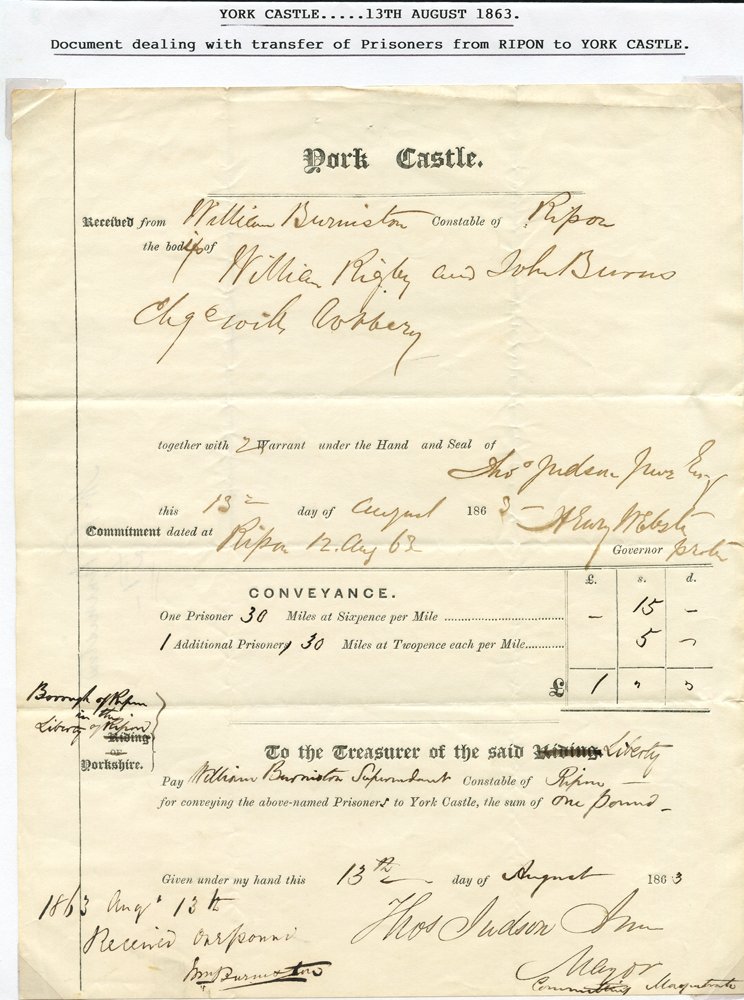 YORK CASTLE.....13TH AUGUST 1863.
Document dealing with transfer of Prisoners from RIPON to YORK CASTLE.
York Castle.
Received from William Burniston Constable of Ripon
the bodies of
William Rigby and John Burns
Chgd with robbery
together with 2 Warrant under the Hand and Seal of
Thos Judson Junr Esq
this 13 day of August 1863
Henry Webster
Commitment dated at Ripon 12 Aug 63
Governor
£. s. d.
CONVEYANCE.
One Prisoner 30 Miles at Sixpence per Mile ........ – 15 –
1 Additional Prisoner 30 Miles at Twopence each per Mile........ 5 –
£ 1 " "
Borough of Ripon
in the
Liberty of Ripon
Riding
OF
Yorkshire.
To the Treasurer of the said Riding Liberty
Pay William Burniston Constable of Ripon
for conveying the above-named Prisoners to York Castle, the sum of One Pound –
Given under my hand this 13th day of August 1863
1863 Augt 13th
Thos Judson Junr
Received One pound
Wm Burniston
Mayor
Committing Magistrate